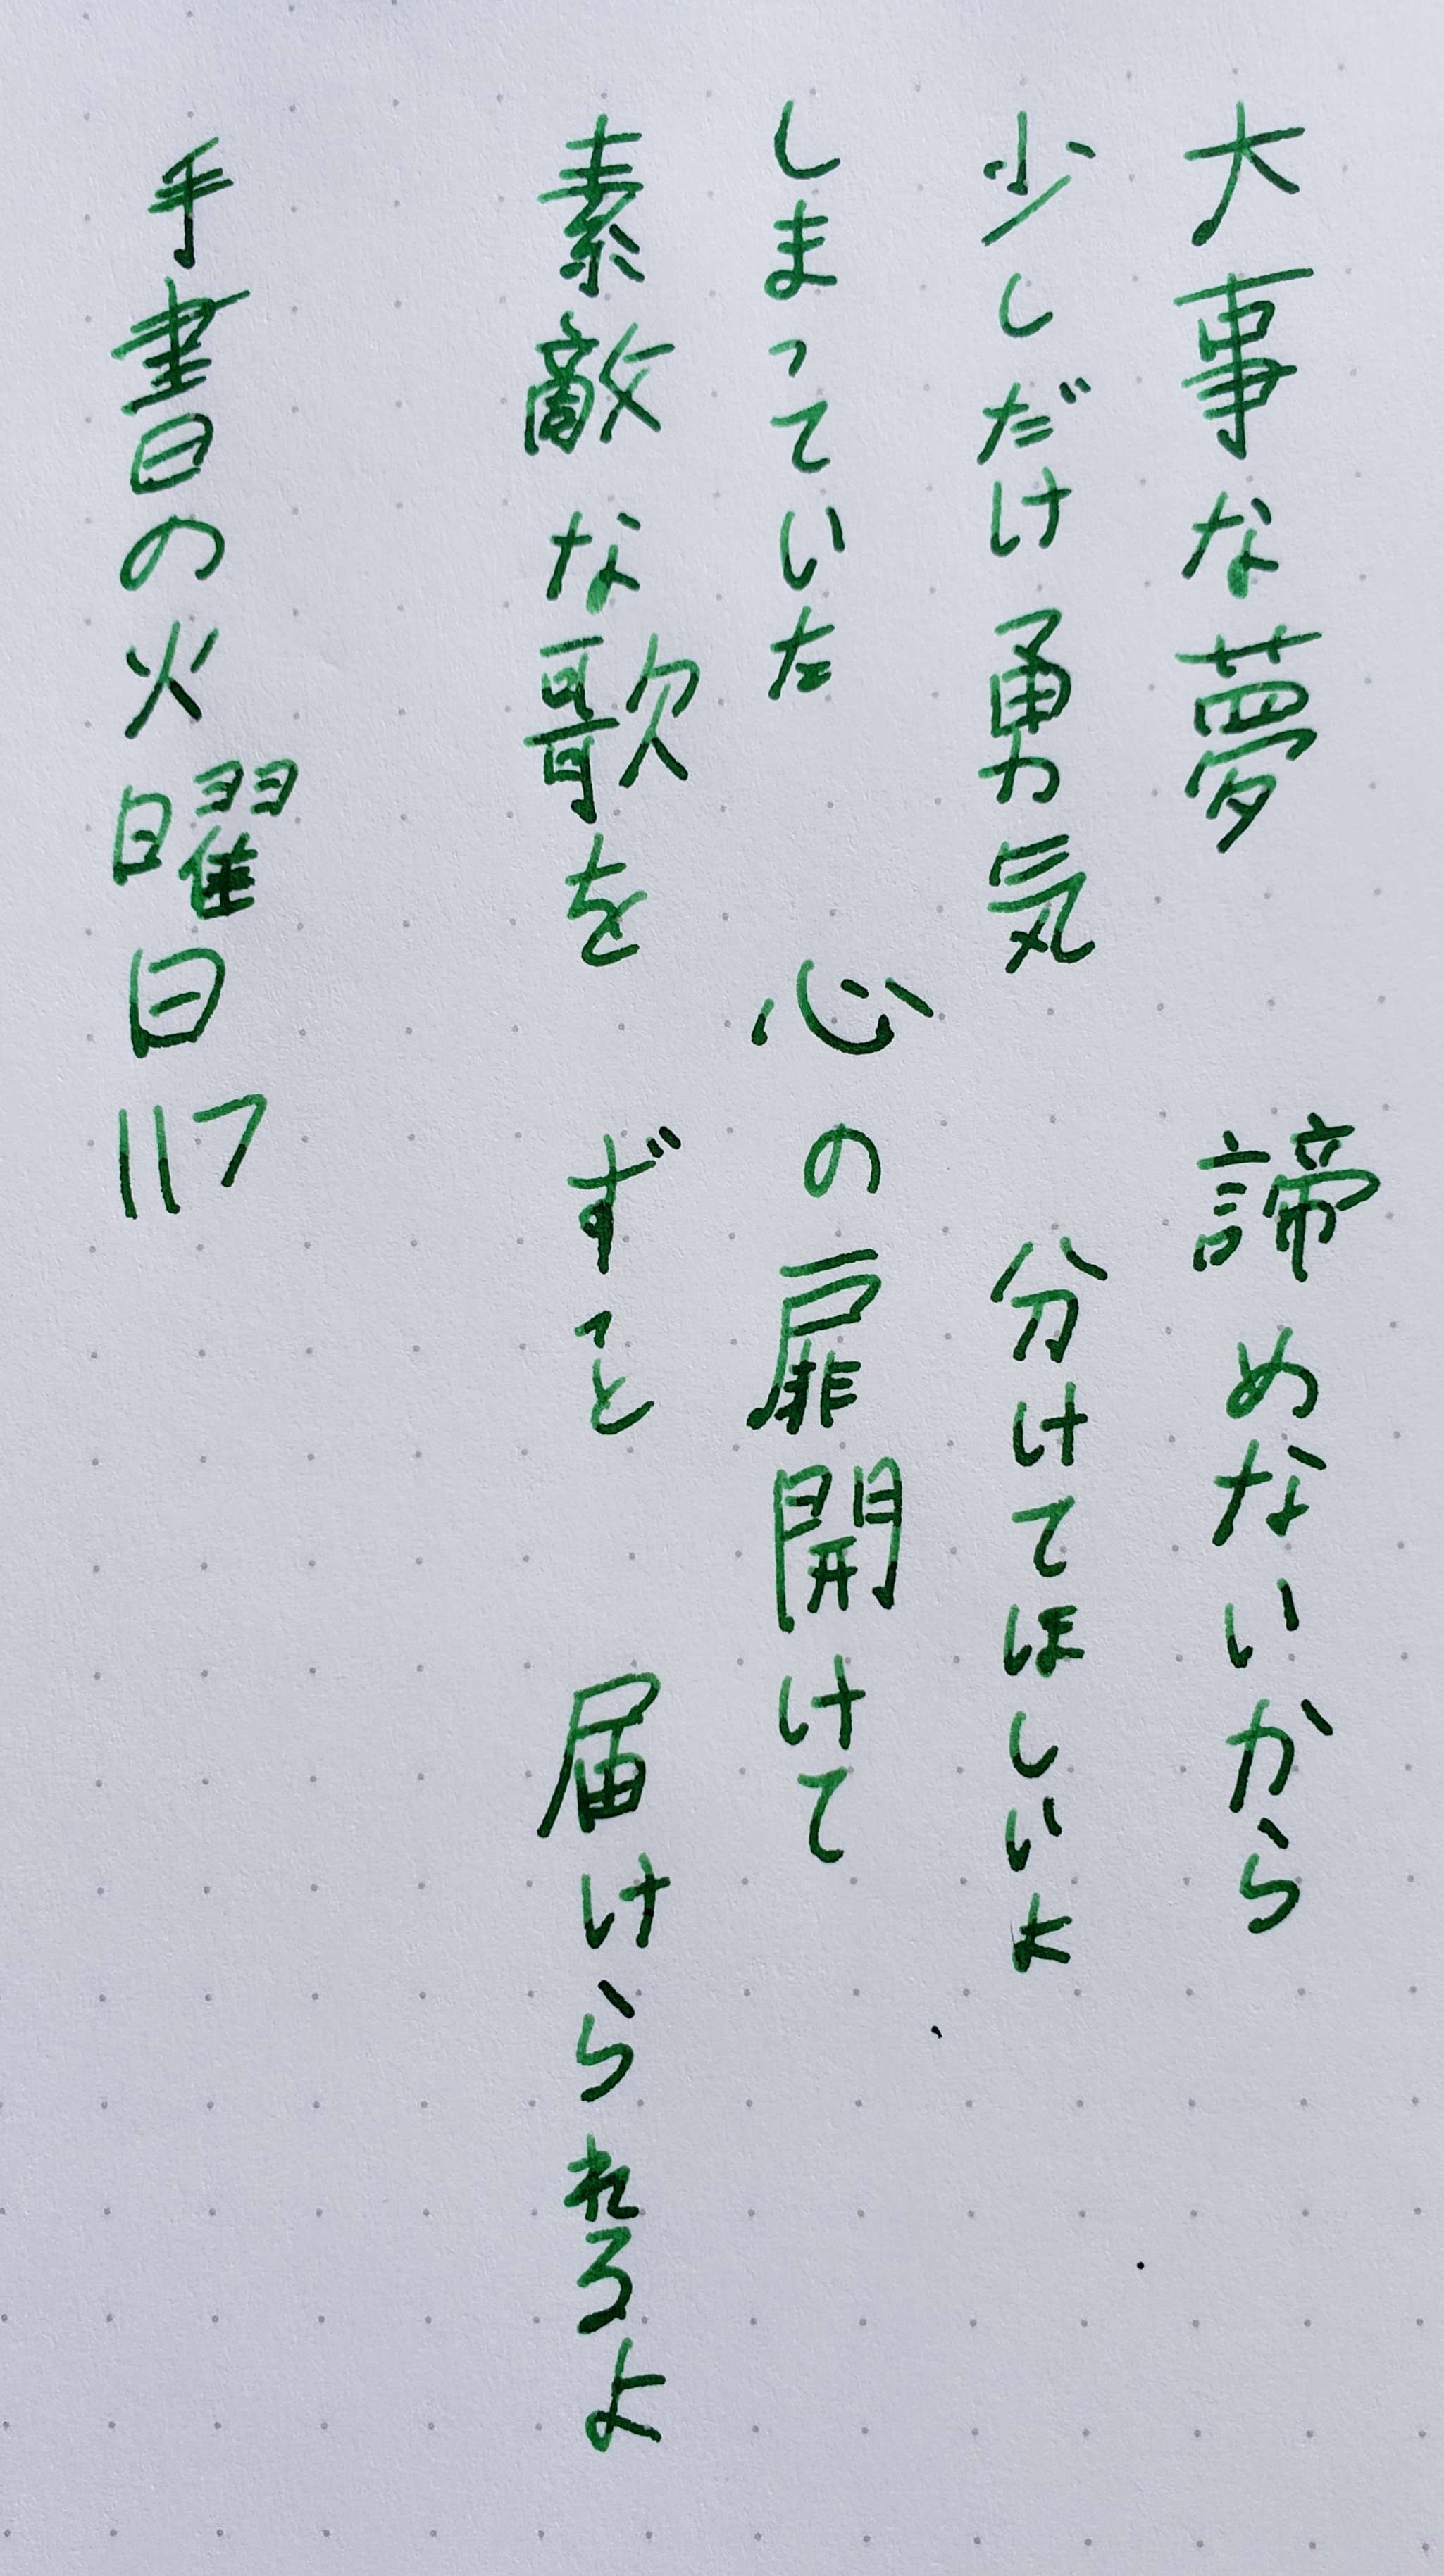 大事な夢　諦めないから
少しだけ勇気　分けてほしいよ
しまっていた　心の扉開けて
素敵な歌を　ずっと　届けられるよ
手書の火曜日117